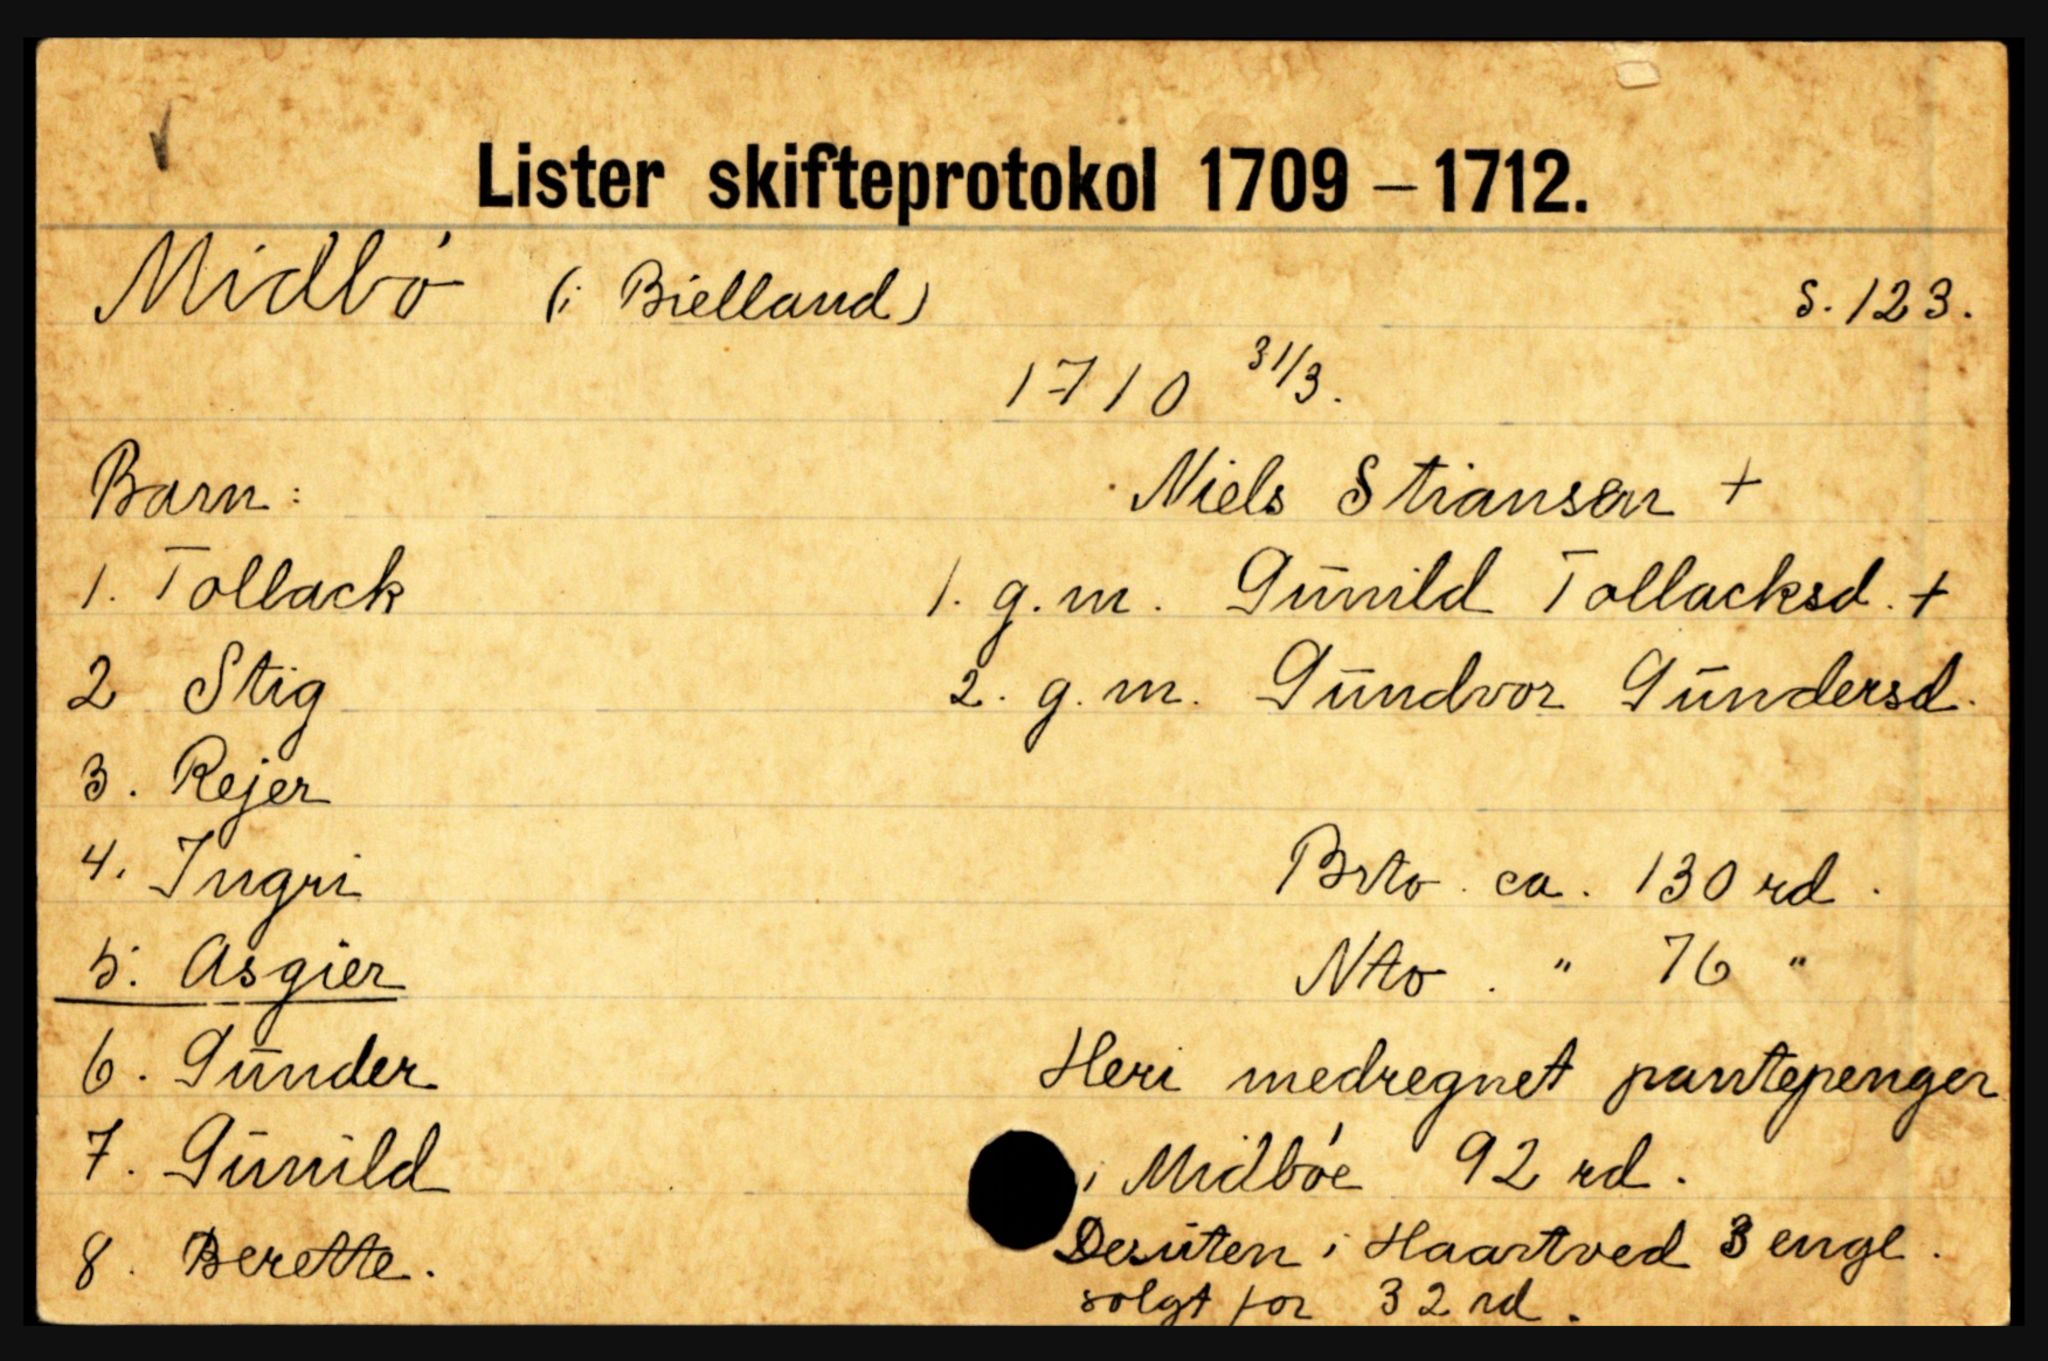 Lister skifteprotokol 1709 – 1712.
Midbø (i Bielland) S. 123.
1710 31/3.
Barn: Niels Stiansen +
1. Tollack 1. g.m. Gunild Tollacksd. +
2 Stig 2. g.m. Gundvor Gundersd.
3. Rejer
4. Ingri Brto. ca. 130 rd.
5. Asgier Nto. " 76 "
6. Gunder Heri medregnet pantepenger
7. Gunild i Midbøe 92 rd.
8. Berette. Desuten i Haartved 3 engl.
solgt for 32 rd.